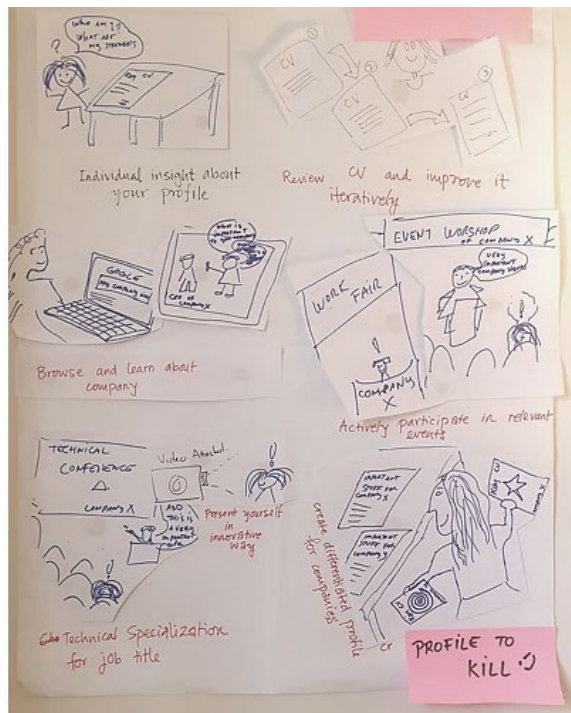 WHO AM I?
WHAT ARE
MY STATEMENTS
?
My CV
Individual insight about
your profile
1
CV
2
CV
3
CV
Review CV and improve it
iteratively
GOOGLE
my company way
WHAT IS
IMPORTANT
TO YOU
CEO OF
COMPANY X
Browse and learn about
company
EVENT WORSHOP
OF COMPANY X
VERY
IMPORTANT
COMPANY
WORK
FAIR
!
COMPANY
X
!
Actively participate in relevant
events
TECHNICAL
CONFERENCE
COMPANY X
Video Attached
!
AND
THIS IS
A VERY
IMPORTANT
Present yourself
in
innovative
way
Technical Specialization
for job title
IMPORTANT
STUFF FOR
COMPANY X
IMPORTANT
STUFF FOR
COMPANY Y
create differentiated profile
for companies
PROFILE TO
KILL :)